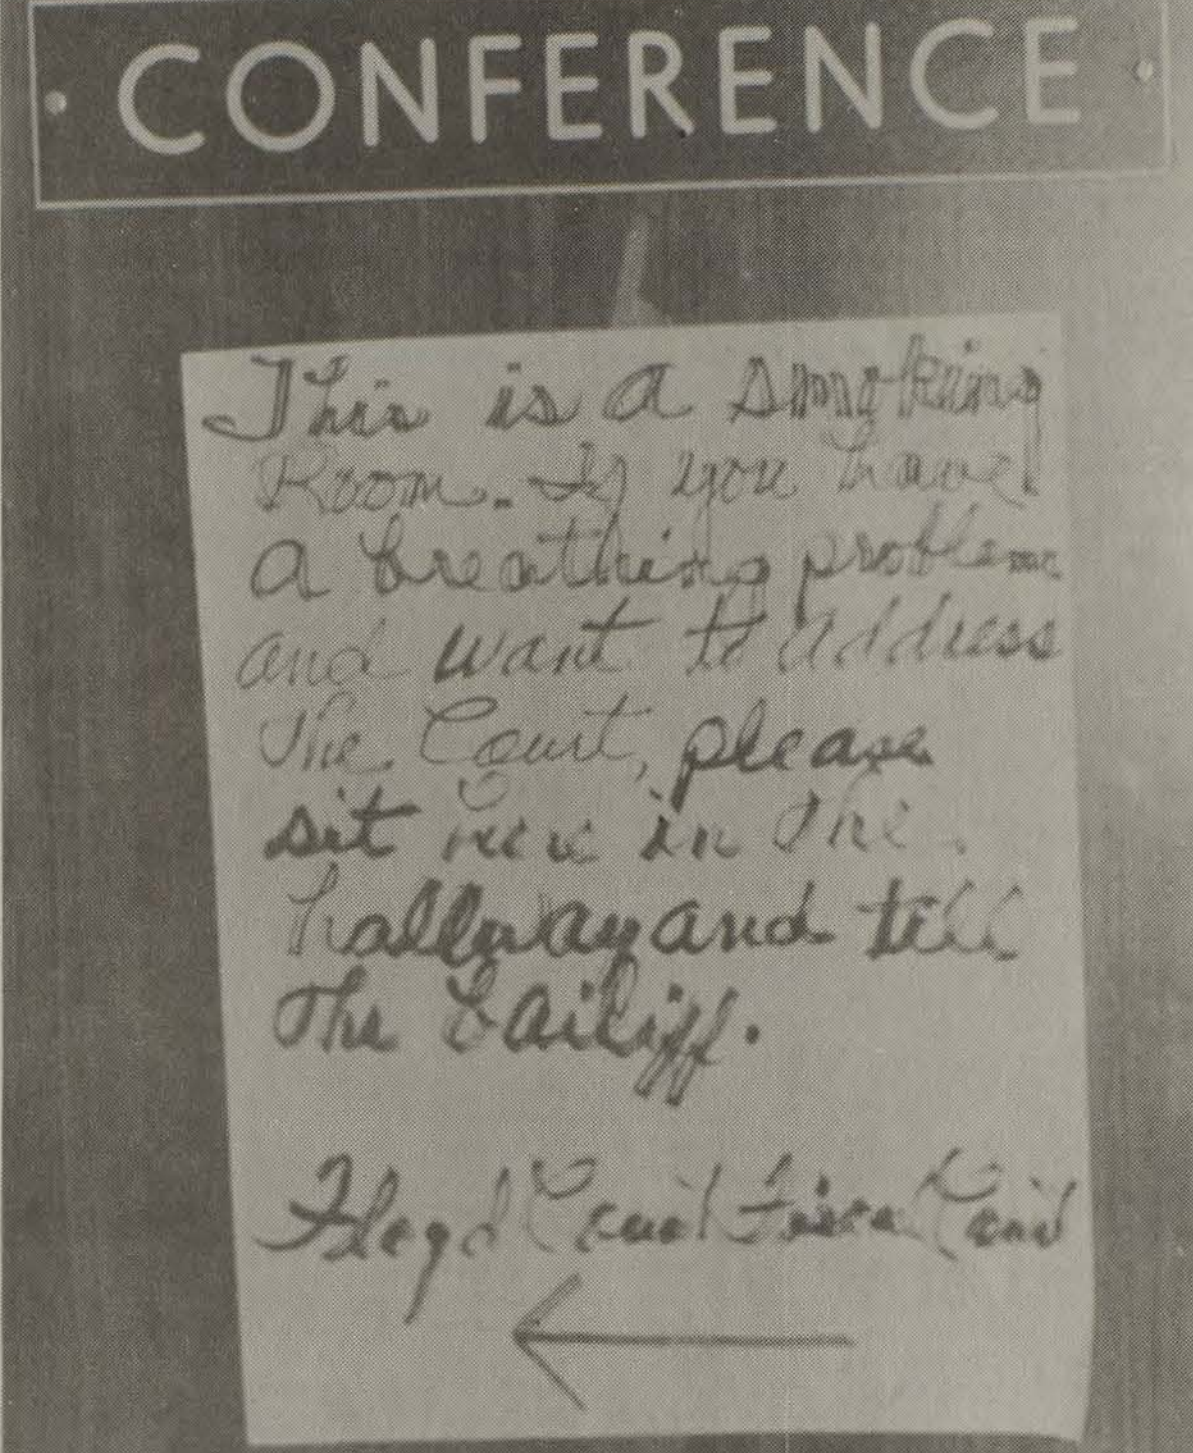 CONFERENCE
This is a smoking
Room. If you have
a breathing problem
and want to address
The Court, please
sit here in the
hallway and tell
The bailiff.
Floyd Court Fiscal Court